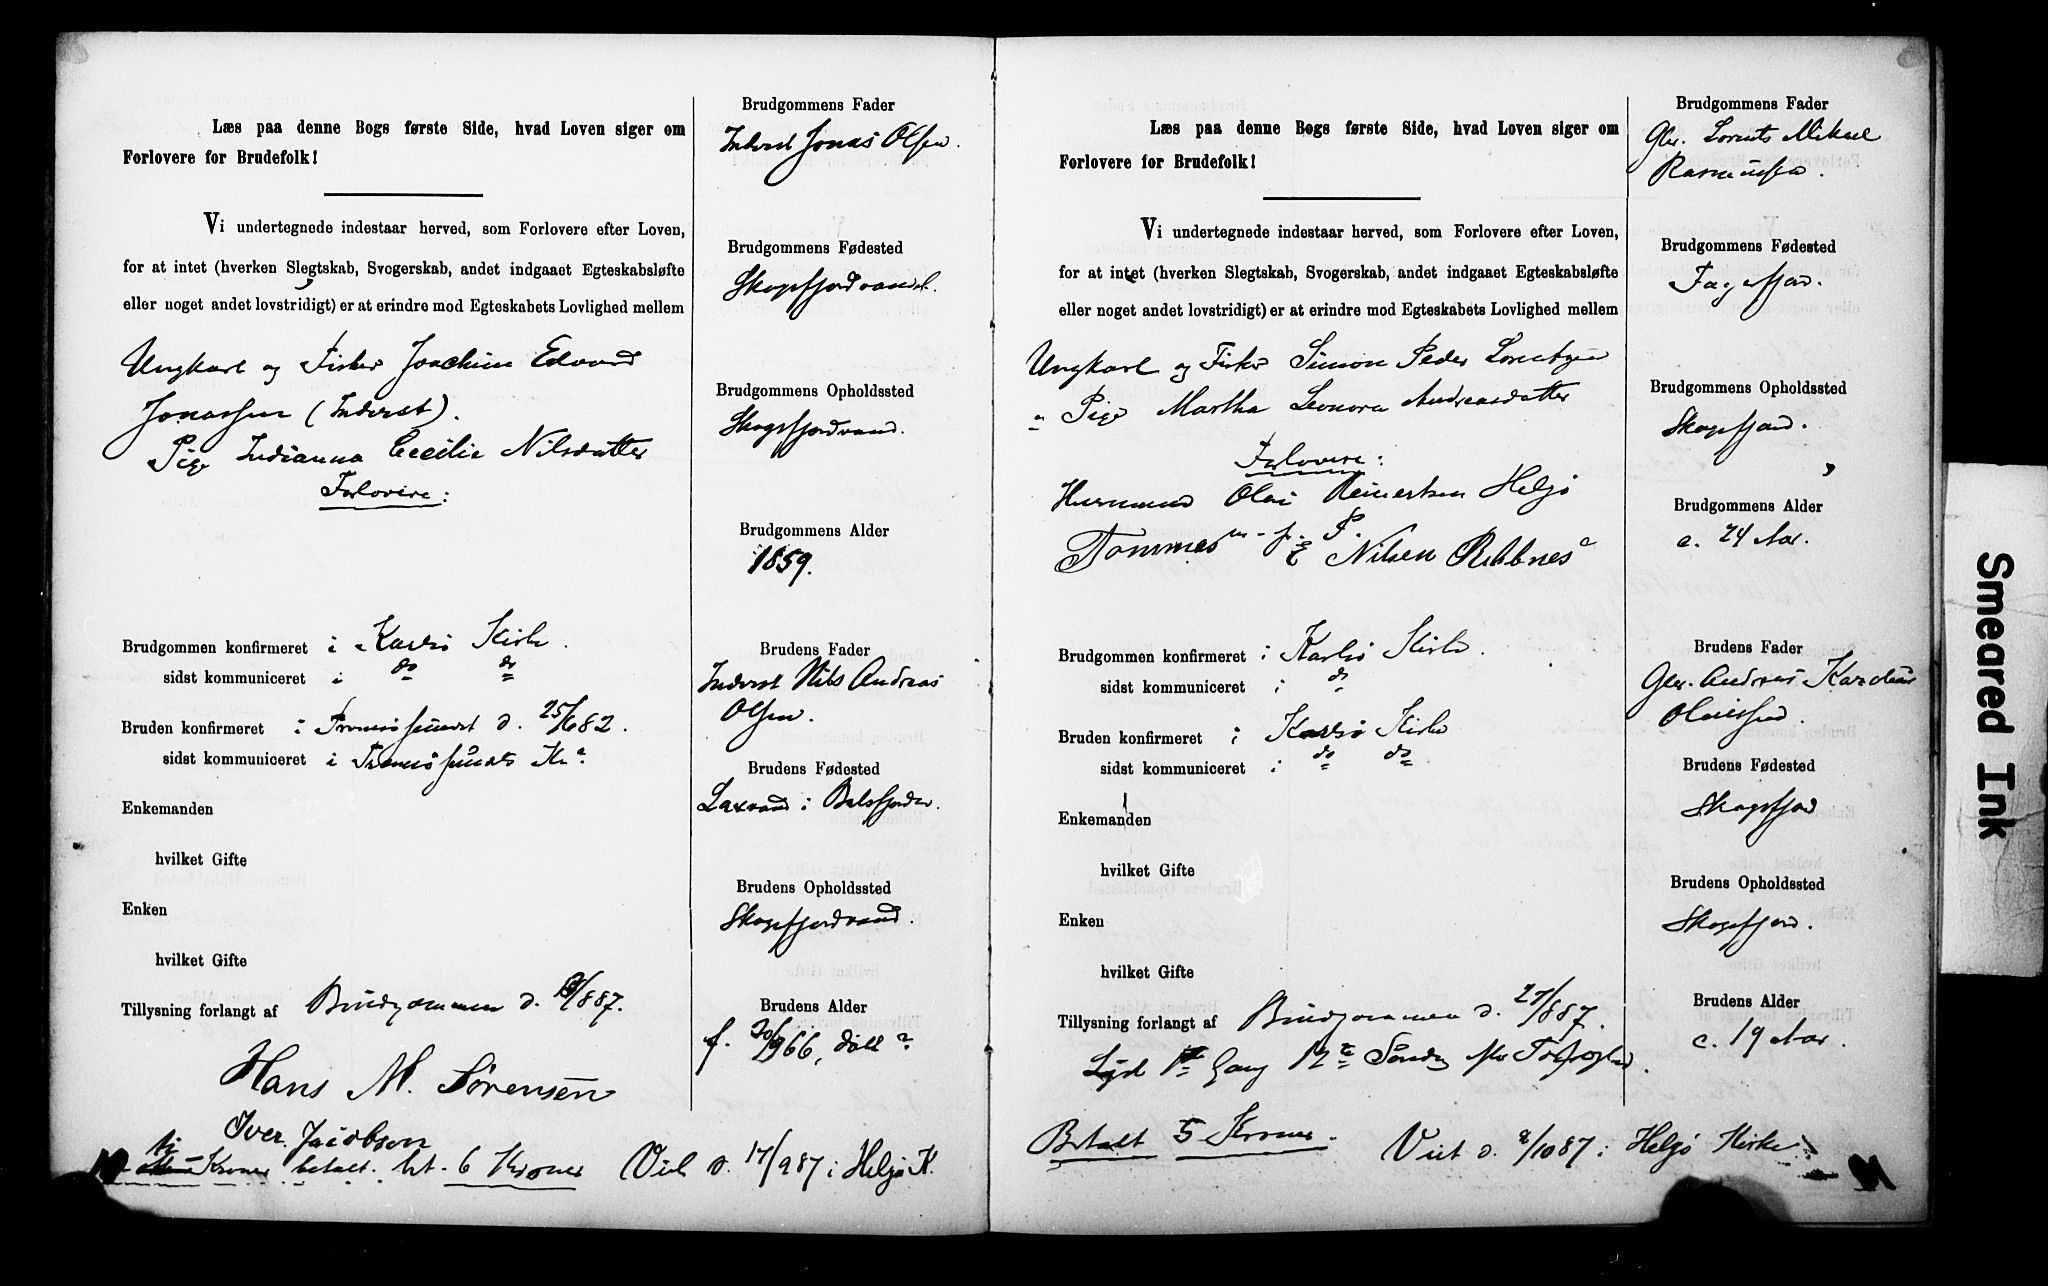 Læs paa denne Bogs første Side, hvad Loven siger om
Forlovere for Brudefolk!
Vi undertegnede indestaar herved, som Forlovere efter Loven,
for at intet (hverken Slegtskab, Svogerskab, andet indgaaet Egteskabsløfte
eller noget andet lovstridigt) er at erindre mod Egteskabets Lovlighed mellem
Ungkarl og Fisker Joachim Edvard
Jonassen (Inderst).
Pige Indianna Cecilie Nilsdatter
Forlovere:
Brudgommen konfirmeret i Karlsø Kirke.
sidst kommuniceret i do do
Bruden konfirmeret i Tromsøsundet d. 25/6 82.
sidst kommuniceret i Tromsøsundets K
Enkemanden
hvilket Gifte
Enken
hvilket Gifte
Tillysning forlangt af Brudgommen d. /887.
Hans M. Sørensen
Iver Jacobson
Kroner betalt. 6 Kroner Viet d. 17/9 87 i Helgø K.
Brudgommens Fader
Inderst Jonas Olsen.
Brudgommens Fødested
Skogsfjordvand.
Brudgommens Opholdssted
Skogsfjordvand.
Brudgommens Alder
1859.
Brudens Fader
Inderst Nils Andreas
Olsen.
Brudens Fødested
Laxvand i Balsfjorden.
Brudens Opholdssted
Skogsfjordvand.
Brudens Alder
f. 66, døbt
Læs paa denne Bogs første Side, hvad Loven siger om
Forlovere for Brudefolk!
Vi undertegnede indestaar herved, som Forlovere efter Loven,
for at intet (hverken Slegtskab, Svogerskab, andet indgaaet Egteskabsløfte
eller noget andet lovstridigt) er at erindre mod Egteskabets Lovlighed mellem
Ungkarl og Fisker Simon Peder Lorentsen
" Pige Martha Leonora Andreasdatter
Forlovere:
Olai Reinertsen Helgø
m. f. P.
Tommas Nilsen Ribbnes
Brudgommen konfirmeret i Karlsø Kirke.
sidst kommuniceret i do
Bruden konfirmeret i Karlsø Kirke
sidst kommuniceret i do do
Enkemanden
hvilket Gifte
Enken
hvilket Gifte
Tillysning forlangt af Brudgommen d. 27/887.
Lyst 1ste Gang 12te Søndg
Betalt 5 Kroner. Viet d. /10 87 i Helgø Kirke
Brudgommens Fader
Gbr. Lorents Mikael
Rasmussen.
Brudgommens Fødested
Fagerfjord.
Brudgommens Opholdssted
Skogsfjord.
Brudgommens Alder
c. 24 Aar.
Brudens Fader
Gbr. Andreas Kardius
Olaissen.
Brudens Fødested
Skogsfjord
Brudens Opholdssted
Skogsfjord.
Brudens Alder
c. 19 Aar.
Smeared Ink